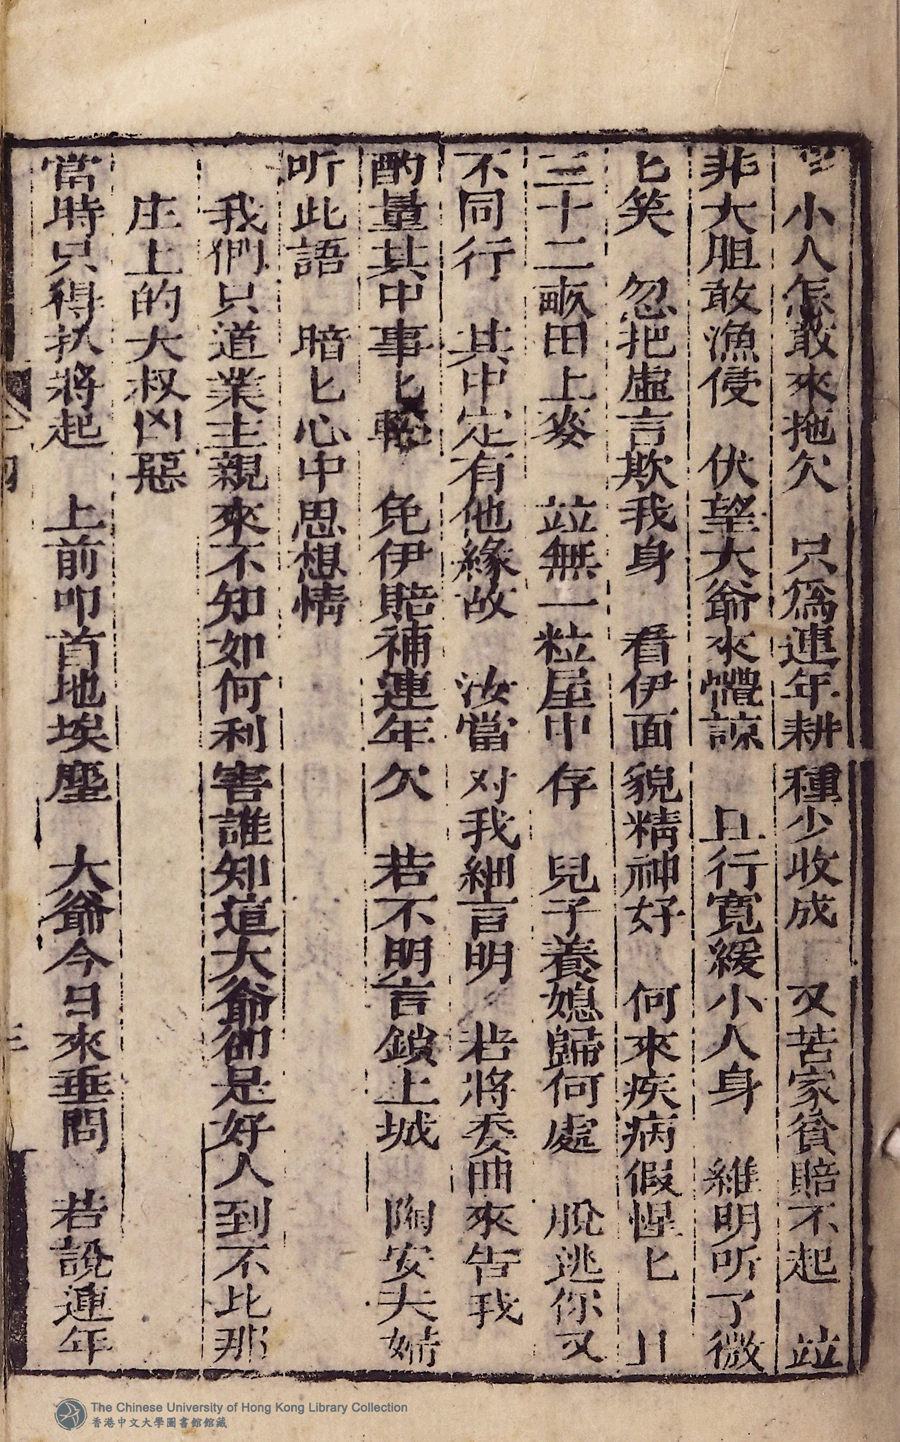 小人怎敢來拖欠　只爲連年耕種少收成　又苦家貧賠不起　竝
非大胆敢漁侵　伏望大爺來軆諒　且行寬緩小人身　維明听了微
匕笑　忽把虛言欺我身　看伊面貌精神好　何來疾病假惺匕　且
三十二畝田上麥　竝無一粒屋中存　兒子養媳歸何處　脫逃你又
不同行　其中定有他緣故　汝當对我細言明　若將委曲來告我
酌量其中事匕輕　免伊賠補連年欠　若不明言鎖上城　陶安夫婦
听此語　暗匕心中思想情
我們只道業主親來不知如何利害誰知這大爺卻是好人到不比那
庄上的大叔凶惡
當時只得扒將起　上前叩首地埃塵　大爺今日來垂問　若說連年
The Chinese University of Hong Kong Library Collection
香港中文大學圖書館館藏